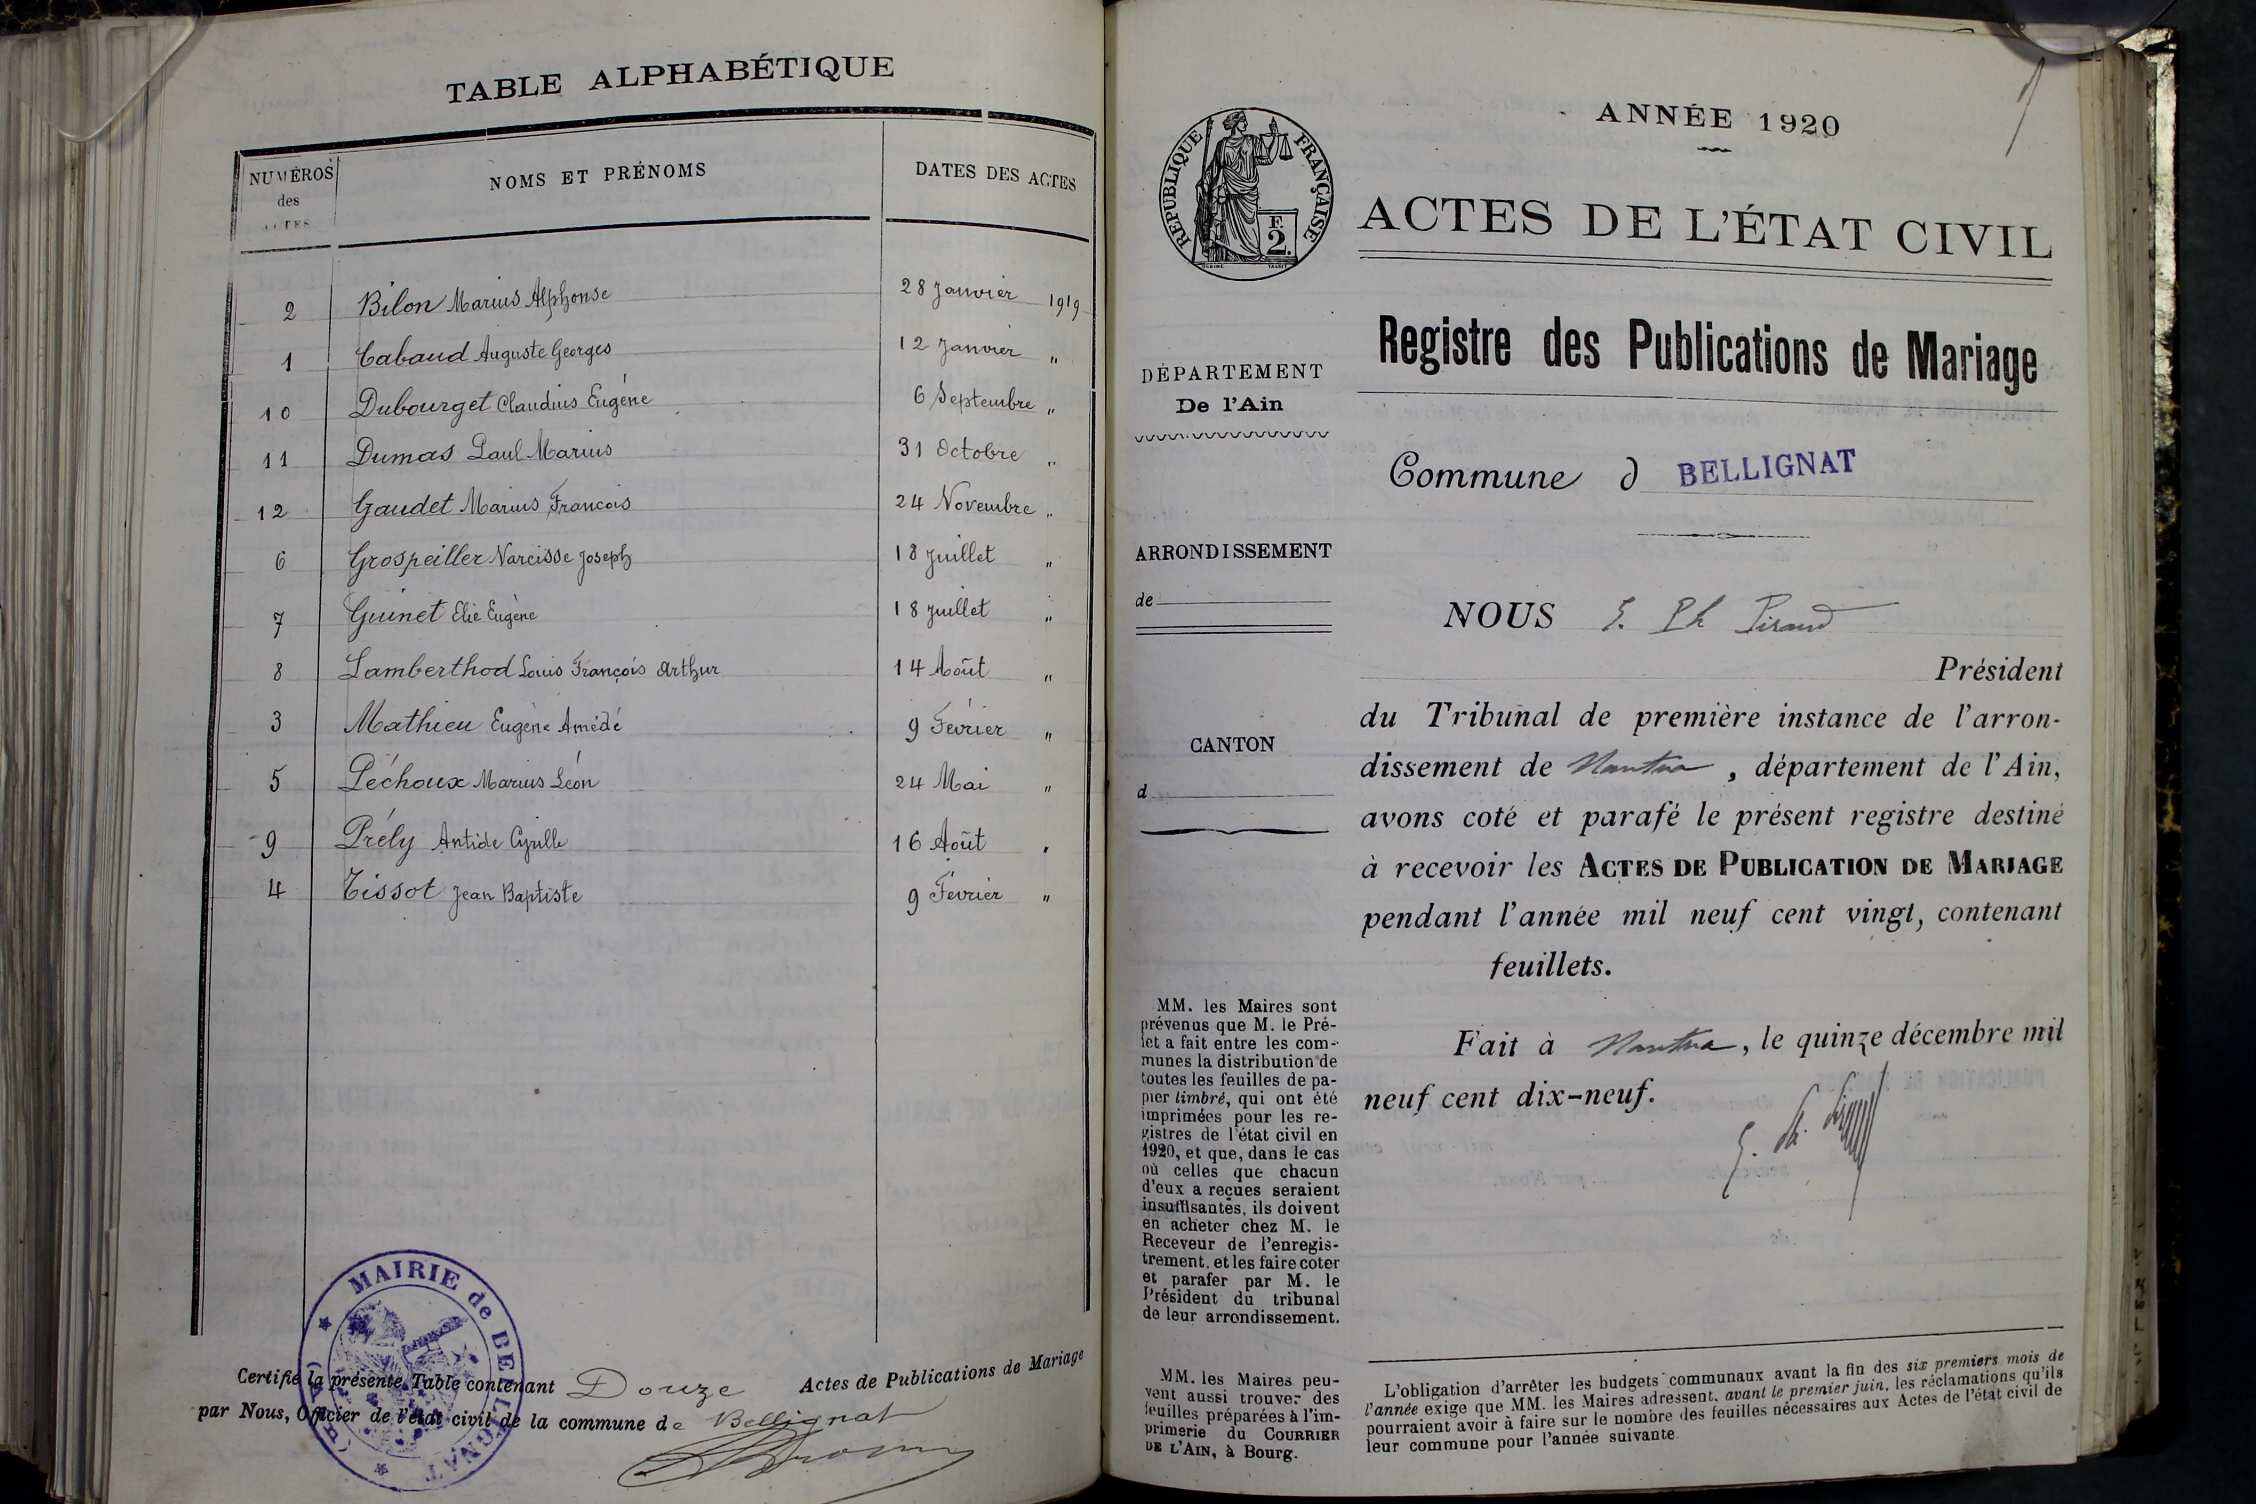 TABLE ALPHABÉTIQUE
NUMÉROS des ACTES
NOMS ET PRÉNOMS
DATES DES ACTES
2 Bilon Marius Alphonse 28 Janvier 1919
1 Cabaud Auguste Georges 12 Janvier "
10 Dubourget Claudius Eugène 6 Septembre "
11 Dumas Paul Marius 31 Octobre "
12 Gaudet Marius François 24 Novembre "
6 Grospeiller Narcisse Joseph 18 Juillet "
7 Guinet Elie Eugène 18 Juillet "
8 Lamberthod Louis François Arthur 14 Août "
3 Mathieu Eugène Amédé 9 Février "
5 Péchoux Marius Léon 24 Mai "
9 Prély Antide Cyrille 16 Août "
4 Tissot Jean Baptiste 9 Février "
MAIRIE de BELLIGNAT
(AIN)
Certifié la présente Table contenant Douze Actes de Publications de Mariage
par Nous, Officier de l'état civil de la commune de Bellignat
ANNÉE 1920
RÉPUBLIQUE FRANÇAISE
F. 2.
ACTES DE L'ÉTAT CIVIL
Registre des Publications de Mariage
DÉPARTEMENT
De l'Ain
Commune d BELLIGNAT
ARRONDISSEMENT
de
CANTON
d
NOUS E. Ph Piraud
Président
du Tribunal de première instance de l'arron-
dissement de Nantua, département de l'Ain,
avons coté et parafé le présent registre destiné
à recevoir les ACTES DE PUBLICATION DE MARIAGE
pendant l'année mil neuf cent vingt, contenant
feuillets.
Fait à Nantua, le quinze décembre mil
neuf cent dix-neuf.
MM. les Maires sont
prévenus que M. le Pré-
fet a fait entre les com-
munes la distribution de
toutes les feuilles de pa-
pier timbré, qui ont été
imprimées pour les re-
gistres de l'état civil en
1920, et que, dans le cas
où celles que chacun
d'eux a reçues seraient
insuffisantes, ils doivent
en acheter chez M. le
Receveur de l'enregis-
trement, et les faire coter
et parafer par M. le
Président du tribunal
de leur arrondissement.
MM. les Maires peu-
vent aussi trouver des
feuilles préparées à l'im-
primerie du COURRIER
DE L'AIN, à Bourg.
L'obligation d'arrêter les budgets communaux avant la fin des six premiers mois de
l'année exige que MM. les Maires adressent, avant le premier juin, les réclamations qu'ils
pourraient avoir à faire sur le nombre des feuilles nécessaires aux Actes de l'état civil de
leur commune pour l'année suivante.